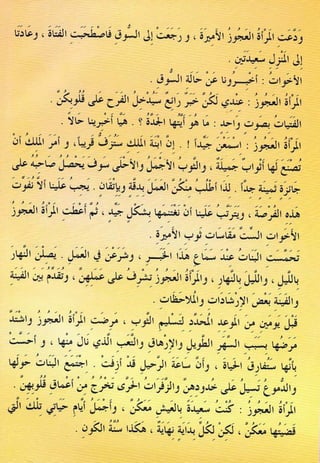 وَدَّعَت المَرْأةُ العَجُوزُ الأميرَةَ ، وَ رَجَعَتْ إلى السُّوقِ فَاصْطَحَبَتِ الفَتَاةَ ، وعَادَتَا
إلى المَنْزِلِ سَعِيدَتَيْنِ .
الأخَوَاتُ : أخْبِـرُونَا عَنْ حَالَةِ السُّوقِ .
المَرْأةُ العَجُوزُ : عِنْدِي لَكُنَّ خَبَرٌ رائِعٌ سَيُدْخِلُ الفَرَحَ عَلى قُلُوبِكُنَّ .
الفَتَيَاتُ بِصَوتٍ واحدٍ : مَا هُوَ أيَّتُها الجَدَّةُ ؟ . هَيَّا أخْبِرِينا حَالاً .
المَرْأةُ العَجُوزُ : اسْمَعْنَ جَيِّداً ! . إنَّ ابْنَةَ المَلِكِ سَتُزَفُّ قَرِيباً ، وَ أمَرَ المَلِكُ أنْ
تُصْنَعَ لَها أثْوابٌ جَمِيلَةٌ ، والثَّوبُ الأجْمَلُ والأحْلَى سوفَ يَحْصُلُ صَاحِبُهُ عَلى
جَائِزةٍ ثَمِينَةٍ جِداً . لِذا أطْلُبُ مِنْكُنَّ العَمَلَ بِدِقَّةٍ وبِإتْقَانٍ . يَجِبُ عَلَينا ألاَّ نُفَوِّتَ
هذِهِ الفُرْصَةَ ، ويَتَرَتَّبُ عَلَينا أنْ نَغْتَنِمَها بِشَكْلٍ جَيِّدٍ ، ثُمَّ أعْطَتِ المَرْأةُ العَجُوزُ
الأخَوَاتِ السِّتَّ مَقَاسَاتِ ثَوبِ الأمِيرَةِ .
تَحَمَّسَتِ البَنَاتُ عِنْدَ سَماعِ هذَا الخَبَـرِ ، وشَرَعْنَ في العَمَلِ . يَصِلْنَ النَّهارَ
بالليلِ ، واللَّيلَ بالنَّهارِ ، والمَرْأةُ العَجُوزُ تُشْرِفُ عَلى عَمَلِهِنَّ ، وتُقَدِّمُ بَينَ الفَيْنَةِ
والفَيْنَةِ بَعْضَ الإرْشَاداتِ والمُلاحَظَاتِ .
قَبْلَ يَوْمَينِ مِنَ المَوعِدِ المُحَدَّدِ لِتَسْلِيمِ الثَّوبِ ، مَرِضَتِ المَرْأةُ العَجُوزُ واشْتَدَّ
مَرَضُها بِسَبَبِ السَّهَرِ الطَّويلِ والإرْهاقِ والتَّعَبِ الَّذي نَالَ مِنْها ، و أحَسَّتْ
بأنَّها سَتُفارِقُ الحَياةَ ، وأنَّ سَاعَةَ الرَّحِيلِ قَدْ أزِفَتْ . اجْتَمَعَ البَنَاتُ حَولَها
والدُّموعُ تَسِيلُ عَلى خُدودِهِنَّ والزَّفَراتُ الحَرَّى تَخْرُجُ مِنْ أعْماقِ قُلُوبِهِنَّ .
المَرْأةُ العَجُوزُ : كُنْتُ سَعِيدَةً بالعَيشِ مَعَكُنَّ ، وأجْمَلُ أيَّامِ حَيَاتي تِلْكَ الَّتي
قَضَيْتُها مَعَكُنَّ ، لَكِنْ لِكُلِّ بِدايَةٍ نِهايَةٌ ، هَكذَا سُنَّةُ الكَونِ .